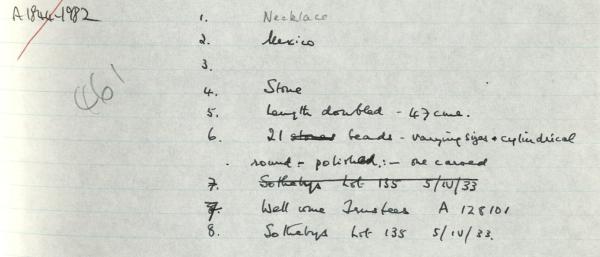 A1844-1982
1. Necklace
2. Mexico
3.
461
4. Stone
5. Length doubled - 47 cms.
6. 21 stones beads - varying sizes + cylindrical
round - polished :- one carved
7. Sothebys Lot 135 5/IV/33
7. Wellcome Trustees A 128101
8. Sothebys Lot 135 5/IV/33.